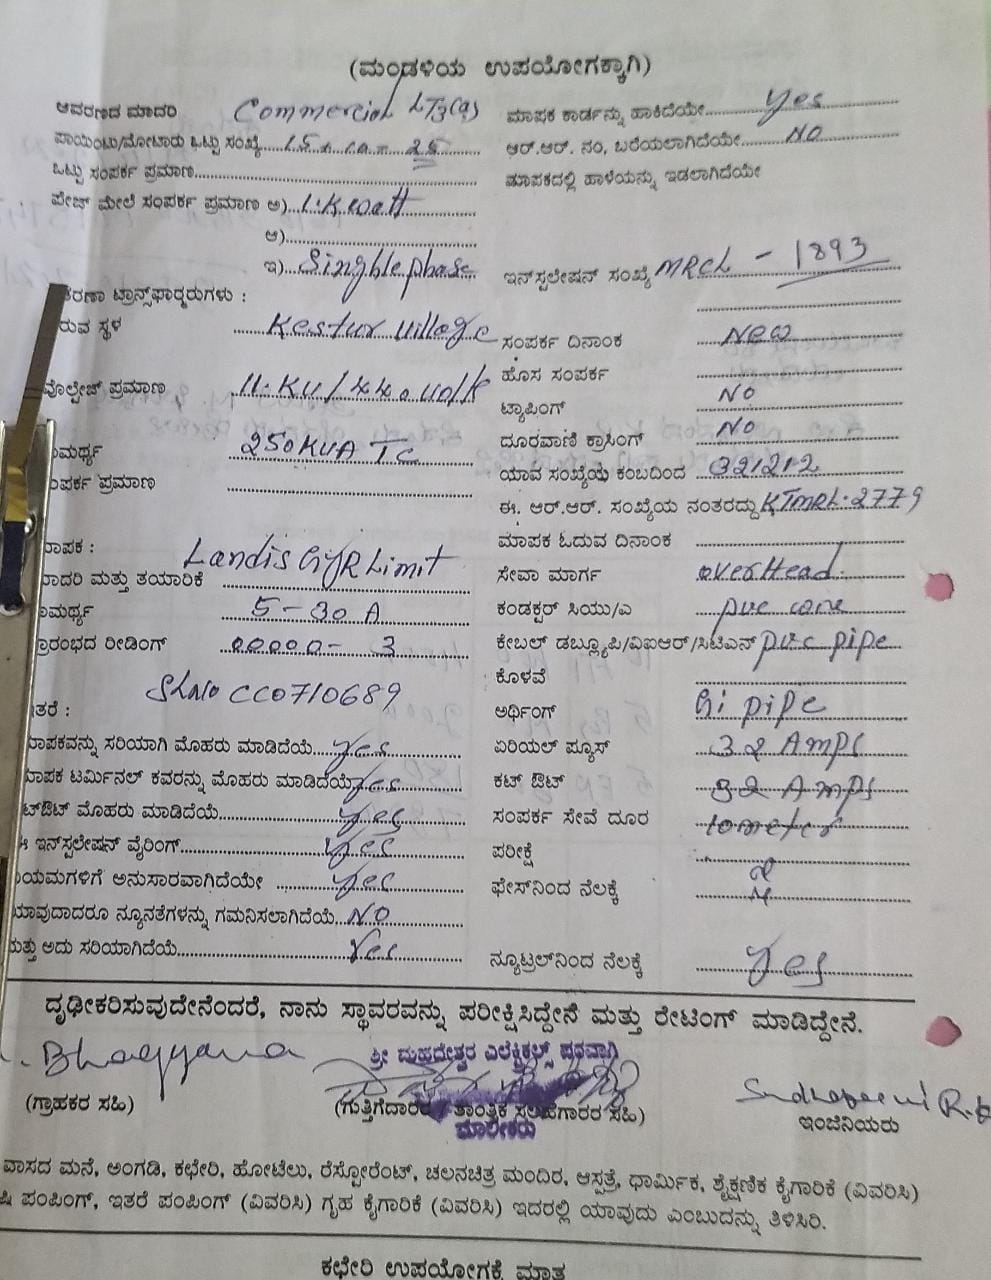 (ಮಂಡಳಿಯ ಉಪಯೋಗಕ್ಕಾಗಿ)
ಆವರಣದ ಮಾದರಿ Commercial LT3(a)
ಪಾಯಿಂಟು/ಮೋಟಾರು ಒಟ್ಟು ಸಂಖ್ಯೆ
ಒಟ್ಟು ಸಂಪರ್ಕ ಪ್ರಮಾಣ
ಪೇಜ್ ಮೇಲೆ ಸಂಪರ್ಕ ಪ್ರಮಾಣ ಅ) 1.Kwatt
ಆ)
ಇ) Singhle phase
ತರಣಾ ಟ್ರಾನ್ಸ್‌ಫಾರ‍್ಮರುಗಳು :
ರುವ ಸ್ಥಳ Kestur Village
ವೋಲ್ಟೇಜ್ ಪ್ರಮಾಣ 11.KV/440 volt
ಾಮರ್ಥ್ಯ 250KVA TC
ಂಪರ್ಕ ಪ್ರಮಾಣ
ಾಪಕ :
ಾದರಿ ಮತ್ತು ತಯಾರಿಕೆ Landis Gyr Limit
ಾಮರ್ಥ್ಯ 5-30 A
್ರಾರಂಭದ ರೀಡಿಂಗ್ 00000-3
Slno CC0710689
ತರೆ :
ಾಪಕವನ್ನು ಸರಿಯಾಗಿ ಮೊಹರು ಮಾಡಿದೆಯೆ yes
ಾಪಕ ಟರ್ಮಿನಲ್ ಕವರನ್ನು ಮೊಹರು ಮಾಡಿದೆಯೆ yes
ಟ್‌ಔಟ್ ಮೊಹರು ಮಾಡಿದೆಯೆ yes
ಈ ಇನ್‌ಸ್ಟಲೇಷನ್ ವೈರಿಂಗ್ yes
ಿಯಮಗಳಿಗೆ ಅನುಸಾರವಾಗಿದೆಯೇ yes
ಯಾವುದಾದರೂ ನ್ಯೂನತೆಗಳನ್ನು ಗಮನಿಸಲಾಗಿದೆಯೆ NO
ಮತ್ತು ಅದು ಸರಿಯಾಗಿದೆಯೆ Yes
ಮಾಪಕ ಕಾರ್ಡನ್ನು ಹಾಕಿದೆಯೇ yes
ಆರ್.ಆರ್. ನಂ, ಬರೆಯಲಾಗಿದೆಯೇ NO
ಮಾಪಕದಲ್ಲಿ ಹಾಳೆಯನ್ನು ಇಡಲಾಗಿದೆಯೇ
ಇನ್‌ಸ್ಟಲೇಷನ್ ಸಂಖ್ಯೆ MRCL - 1893
ಸಂಪರ್ಕ ದಿನಾಂಕ New
ಹೊಸ ಸಂಪರ್ಕ
ಟ್ಯಾಪಿಂಗ್ NO
ದೂರವಾಣಿ ಕ್ರಾಸಿಂಗ್ NO
ಯಾವ ಸಂಖ್ಯೆಯ ಕಂಬದಿಂದ
ಈ. ಆರ್.ಆರ್. ಸಂಖ್ಯೆಯ ನಂತರದ್ದು KTMRL.2779
ಮಾಪಕ ಓದುವ ದಿನಾಂಕ
ಸೇವಾ ಮಾರ್ಗ overHead
ಕಂಡಕ್ಟರ್ ಸಿಯು/ಎ pvc
ಕೇಬಲ್ ಡಬ್ಲ್ಯೂಪಿ/ವಿಐಆರ್/ಸಿಟಿಎಸ್ pvc pipe
ಕೊಳವೆ
ಅರ್ಥಿಂಗ್ Gi pipe
ಏರಿಯಲ್ ಪ್ಯೂಸ್ 32 Amps
ಕಟ್ ಔಟ್ 32 Amps
ಸಂಪರ್ಕ ಸೇವೆ ದೂರ 10meter
ಪರೀಕ್ಷೆ
ಫೇಸ್‌ನಿಂದ ನೆಲಕ್ಕೆ
ನ್ಯೂಟ್ರಲ್‌ನಿಂದ ನೆಲಕ್ಕೆ yes
ದೃಢೀಕರಿಸುವುದೇನೆಂದರೆ, ನಾನು ಸ್ಥಾವರವನ್ನು ಪರೀಕ್ಷಿಸಿದ್ದೇನೆ ಮತ್ತು ರೇಟಿಂಗ್ ಮಾಡಿದ್ದೇನೆ.
ಶ್ರೀ ಮಹದೇಶ್ವರ ಎಲೆಕ್ಟ್ರಿಕಲ್ಸ್ ಪರವಾಗಿ
(ಗ್ರಾಹಕರ ಸಹಿ) (ಗುತ್ತಿಗೆದಾರರ / ತಾಂತ್ರಿಕ ಸಲಹೆಗಾರರ ಸಹಿ) ಇಂಜಿನಿಯರು
ಮಾಲೀಕರು
ವಾಸದ ಮನೆ, ಅಂಗಡಿ, ಕಛೇರಿ, ಹೋಟೆಲು, ರೆಸ್ಟೋರೆಂಟ್, ಚಲನಚಿತ್ರ ಮಂದಿರ, ಆಸ್ಪತ್ರೆ, ಧಾರ್ಮಿಕ, ಶೈಕ್ಷಣಿಕ ಕೈಗಾರಿಕೆ (ವಿವರಿಸಿ)
ಷಿ ಪಂಪಿಂಗ್, ಇತರೆ ಪಂಪಿಂಗ್ (ವಿವರಿಸಿ) ಗೃಹ ಕೈಗಾರಿಕೆ (ವಿವರಿಸಿ) ಇದರಲ್ಲಿ ಯಾವುದು ಎಂಬುದನ್ನು ತಿಳಿಸಿರಿ.
ಕಛೇರಿ ಉಪಯೋಗಕ್ಕೆ ಮಾತ್ರ